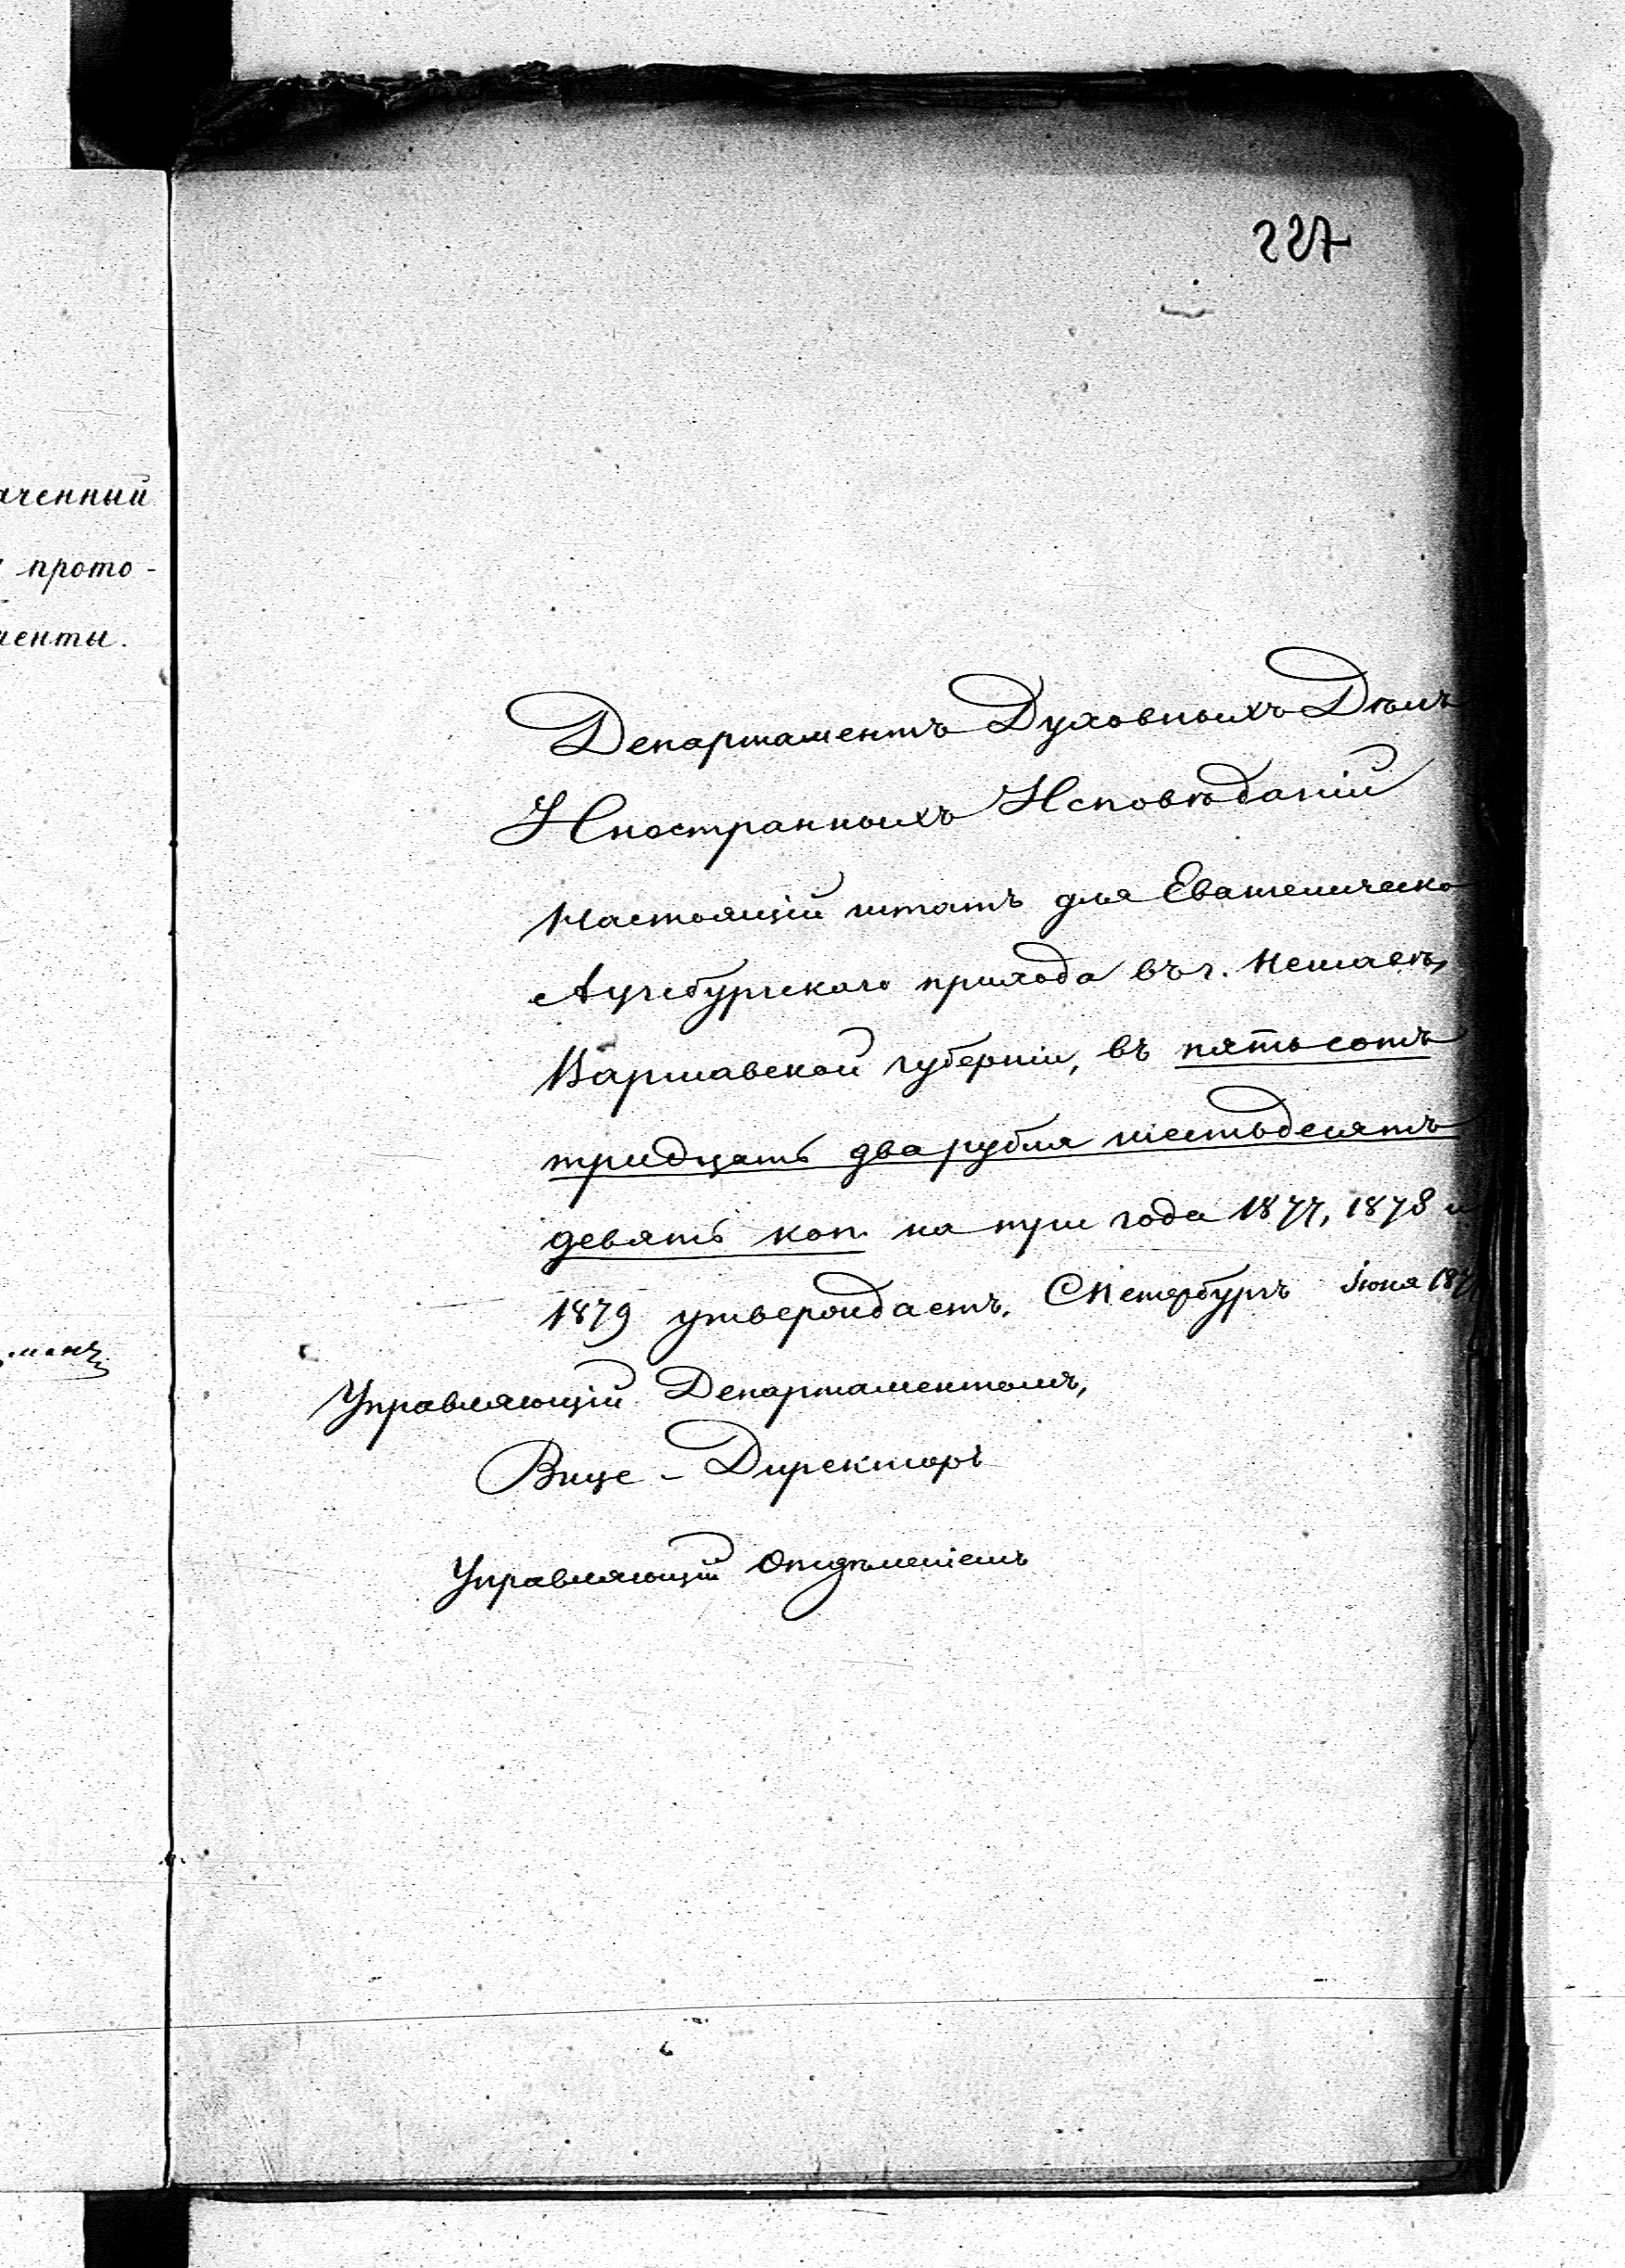 227
аченный
прото-
менты.
Департаментъ Духовныхъ Дѣлъ
Иностранныхъ Исповѣданій
настоящій штатъ для Евангелическо
Аугсбургскаго прихода въ г. Нешавѣ,
Варшавской губерніи, въ пятьсотъ
тридцать два рубля шестьдесятъ
девять коп. на три года 1877, 1878 и
1879 утверждаетъ. СПетербургъ Іюня 187
Управляющій Департаментомъ,
Вице-Директоръ
Управляющій Отдѣленіемъ